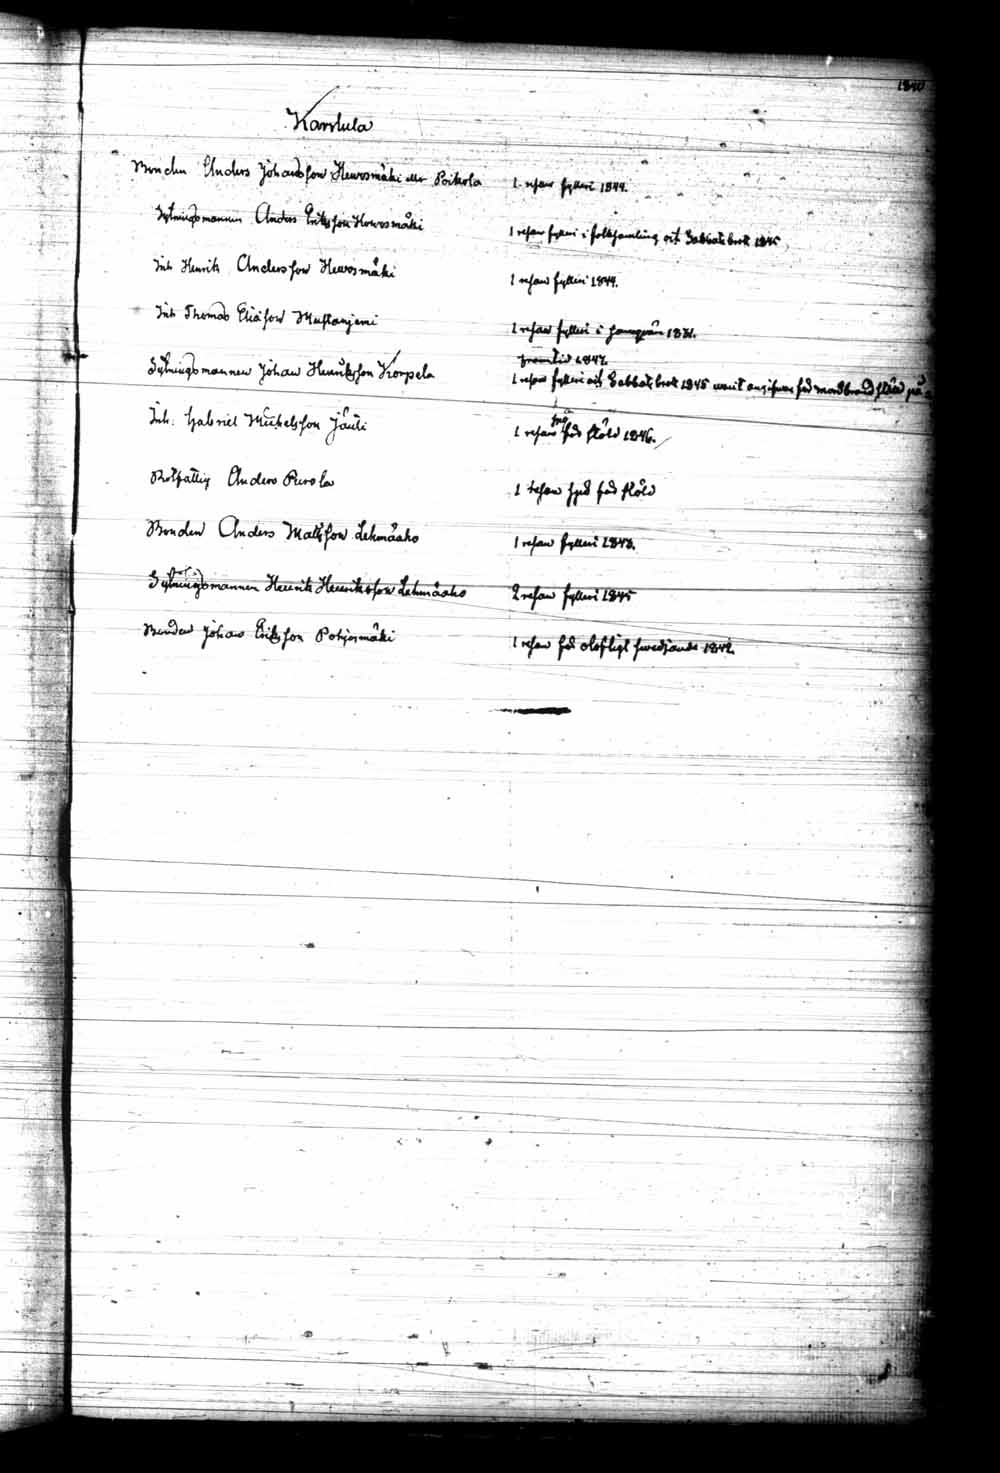 1840
Karstula
Bonden Anders Johansson Heursmäki eller Poikola 1 resan fylleri 1844.
Sytningsmannen Anders Eriksson Howsmäki 1 resan fylleri i folksamling och Sabbatsbrott 1845
Inh Henrik Andersson Heursmäki 1 resan fylleri 1844.
Inh Thomas Eliasson Mustanjemi 1 resan fylleri i 1831.
1847.
Sytningsmannen Johan Henriksson Korpela 1 resan fylleri och Sabbatsbrott 1845 för mordbrand på
Inh. Gabriel Michelsson Jauli 1 resan för stöld 1846.
Rotfattig Anders Purola 1 resan för stöld
Bonden Anders Mattsson Lehmäaho 1 resan fylleri 1843.
Sytningsmannen Henrik Henriksson Lehmäaho 2 resan fylleri 1845
Bonden Johan Eriksson Pohjosmäki 1 resan för olofligt swedjande 1842.